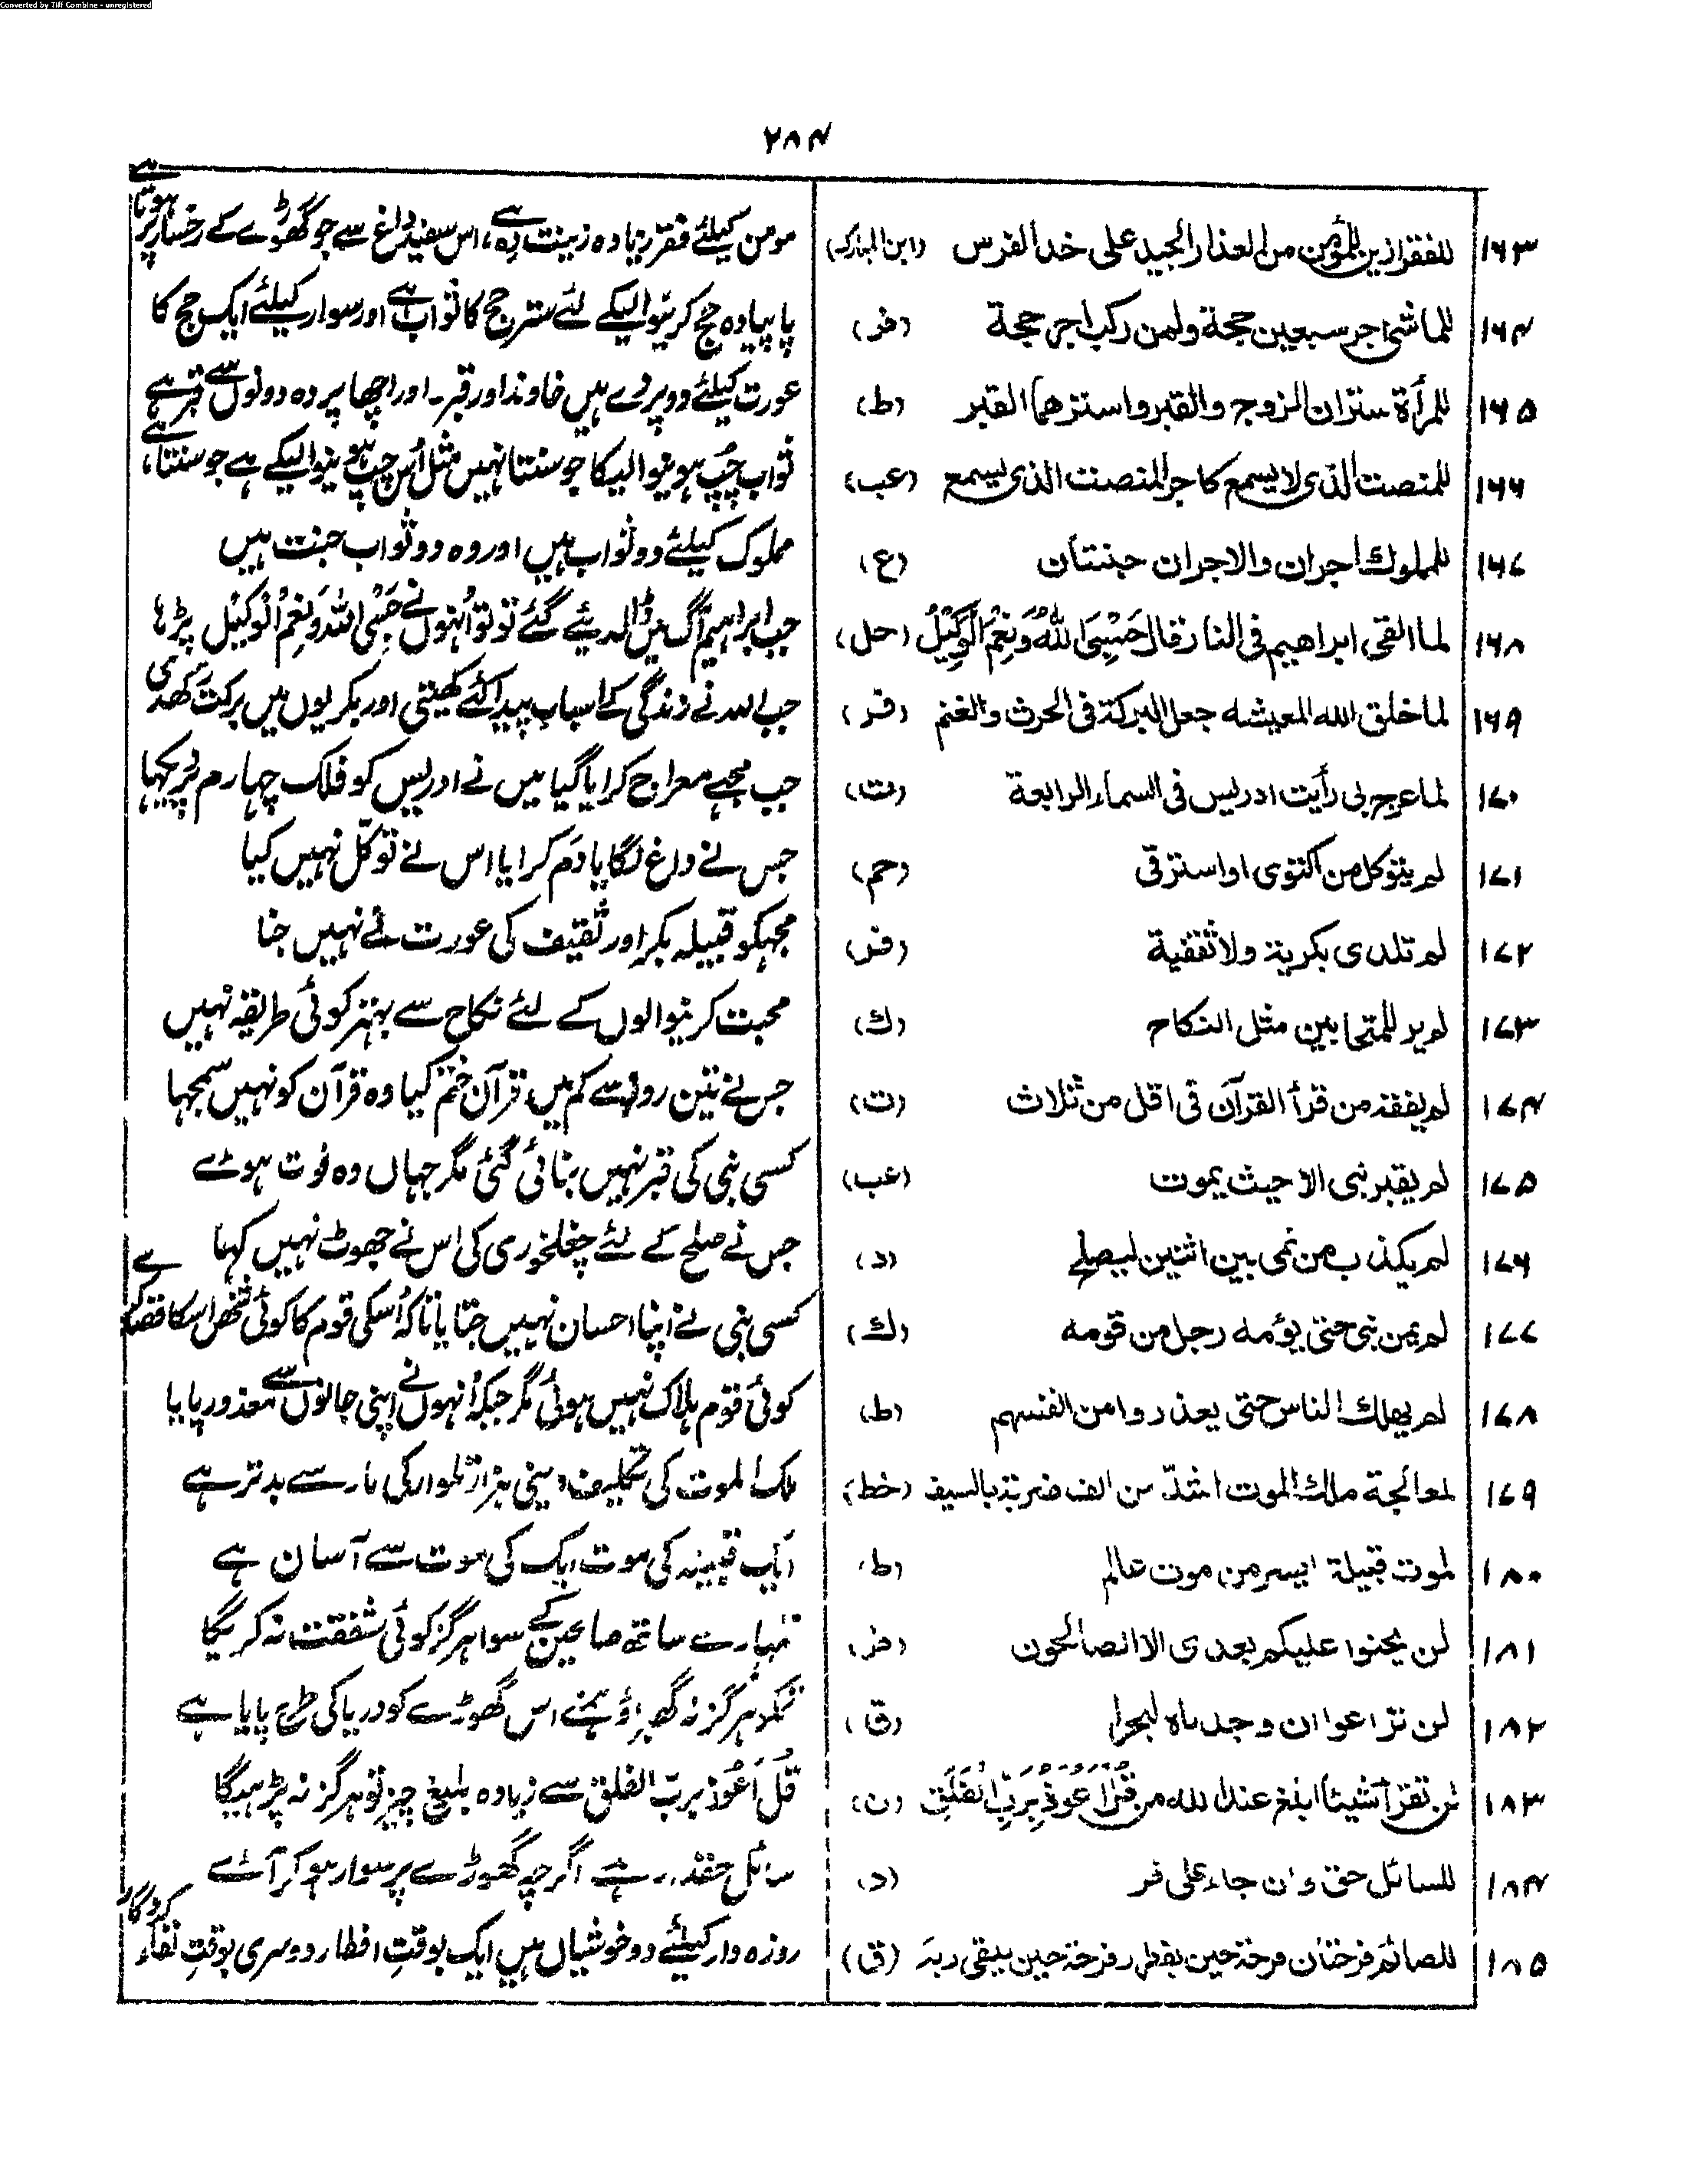 Converted by Tiff Combine - unregistered
۲۸۴
۱۶۳ للفقر ازین للمؤمن من العذار الجید علی خد الفرس (ابن المبارک) مومن کیلئے فقر زیادہ زینت دہ ہے، اس سفید داغ سے جو گھوڑے کے رخسار پر ہوتا ہے
۱۶۴ للماشی اجر سبعین حجة ولمن رکب اجر حجة (فر) پا پیادہ حج کرنیوالیکے لئے ستر حج کا ثواب ہے اور سوار کیلئے ایک حج کا
۱۶۵ للمرأة ستران الزوج والقبر واسترهما القبر (ط) عورت کیلئے دو پردے ہیں خاوند اور قبر۔ اور اچھا پردہ دونوں سے قبر ہے
۱۶۶ للمنصت الذی لا یسمع کاجر المنصت الذی یسمع (عب) ثواب چپ ہونیوالیکا جو سنتا نہیں مثل اُس چپ ہونیوالیکے ہے جو سنتا ہے
۱۶۷ للمملوك اجران والاجران جنتان (ع) مملوک کیلئے دو ثواب ہیں اور وہ دو ثواب جنت ہیں
۱۶۸ لما القی ابراهیم فی النار قال حَسْبِیَ اللّٰهُ وَنِعْمَ الْوَکِیْلُ (حل) جب ابراہیم آگ میں ڈالدیئے گئے تو اُنہوں نے حَسْبِیَ اللّٰہُ وَنِعْمَ الْوَکِیْلُ پڑہا
۱۶۹ لما خلق الله المعیشه جعل البرکة فی الحرث والغنم (فر) جب اللہ نے زندگی کے اسباب پیدا کئے کھیتی اور بکریوں میں برکت رکھدی
۱۷۰ لما عرج بی رأیت ادریس فی السماء الرابعة (ت) جب مجھے معراج کرایا گیا میں نے ادریس کو فلک چہارم پر دیکھا
۱۷۱ لم یتوکل من اکتوی او استرقی (حم) جس نے داغ لگایا دَم کرایا اس نے توکّل نہیں کیا
۱۷۲ لم تلدی بکریة ولا ثقفیة (فر) مجہکو قبیلہ بکر اور ثقیف کی عورت نے نہیں جنا
۱۷۳ لم یر للمتحابین مثل النکاح (ك) محبت کرنیوالوں کے لئے نکاح سے بہتر کوئی طریقہ نہیں
۱۷۴ لم یفقه من قرأ القرآن فی اقل من ثلاث (ت) جس نے تین روز سے کم میں قرآن ختم کیا وہ قرآن کو نہیں سمجہا
۱۷۵ لم یقبر نبی الا حیث یموت (عب) کسی نبی کی قبر نہیں بنائی گئی مگر جہاں وہ فوت ہوئے
۱۷۶ لم یکذب من نمی بین اثنین لیصلح (د) جس نے صلح کے لئے چغلخوری کی اس نے جھوٹ نہیں کہا
۱۷۷ لم یمن نبی حتی یؤمه رجل من قومه (ك) کسی نبی نے اپنا احسان نہیں جتایا تاکہ اُسکی قوم کا کوئی شخص اسکا
۱۷۸ لم یهلك الناس حتی یعذروا من انفسهم (ط) کوئی قوم ہلاک نہیں ہوئی مگر جبکہ اُنہوں نے اپنی جانوں سے معذور پایا
۱۷۹ لمعالجة ملك الموت اشدّ من الف ضربة بالسیف (خط) ملک الموت کی تکلیف دینی ہزار تلوار کی مار سے بدتر ہے
۱۸۰ لموت قبیلة ایسر من موت عالم (ط) ایک قبیلہ کی موت ایک کی موت سے آسان ہے
۱۸۱ لن یحنوا علیکم بعدی الا الصالحون (فر) تمہارے ساتھ صالحین کے سوا ہرگز کوئی شفقت نہ کریگا
۱۸۲ لن تراعوا ان وجدناه لبحرا (ق) تمکو ہرگز نہ گھبراؤ ہمنے اس گھوڑے کو دریا کی طرح پایا ہے
۱۸۳ لن تقرأ شیئا ابلغ عند الله من قُلْ اَعُوْذُ بِرَبِّ الْفَلَقِ (ن) قُل اَعُوْذُ بربّ الفلق سے زیادہ بلیغ چیز تو ہرگز نہ پڑہیگا
۱۸۴ للسائل حق وان جاء علی فر (د) سائل حقدار ہے اگرچہ گھوڑے پر سوار ہو کر آئے
۱۸۵ للصائم فرحتان فرحة حین یفطر و فرحة حین یلقی ربه (ق) روزہ دار کیلئے دو خوشیاں ہیں ایک بوقتِ افطار دوسری بوقتِ لقاء